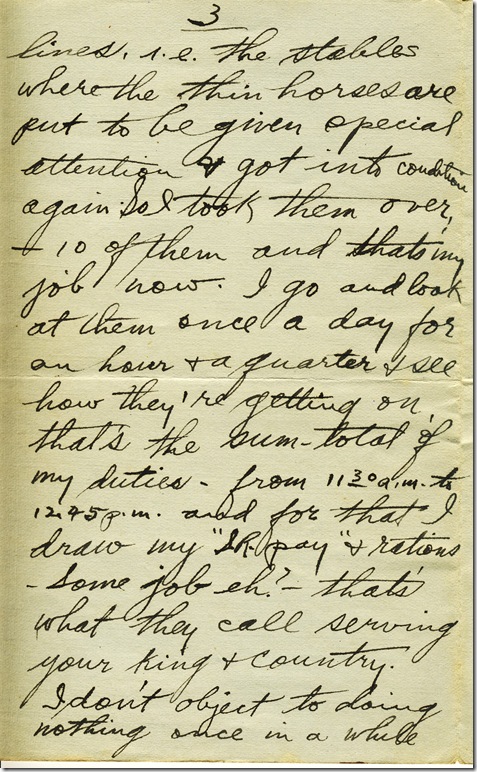 3
lines, i.e. the stables
where the thin horses are
put to be given special
attention & got into condition
again. So I took them over,
- 10 of them and that's my
job now. I go and look
at them once a day for
an hour & a quarter & see
how they're getting on,
that's the sum-total of
my duties - from 11 30 a.m. to
12.45 p.m. and for that I
draw my "S.R. pay" & rations
- Some job eh? - that's
what they call serving
your king & country.
I don't object to doing
nothing once in a while